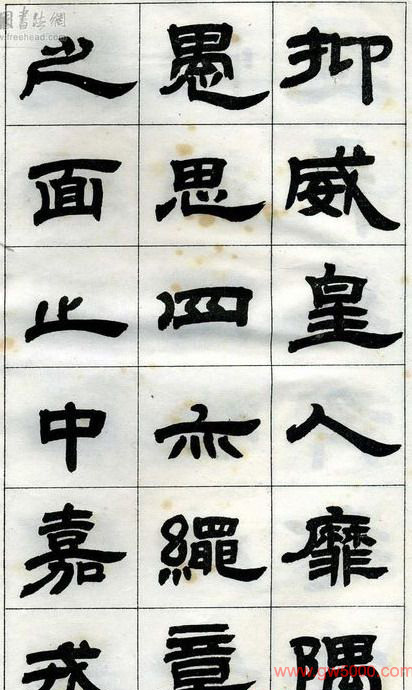 抑威皇人靡隅
愚思四亦繩章
之面止中嘉戎
書法網
www.freehead.com
www.gw5000.com